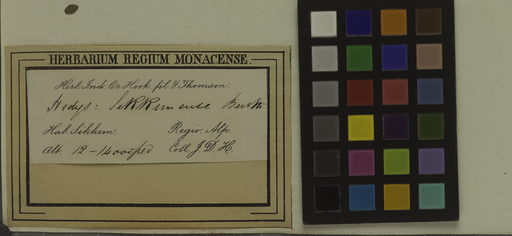 HERBARIUM REGIUM MONACENSE.
Herb. Ind. Or. Hook. fil. & Thomson.
Hedys: Sikkimense Benth
Hab. Sikkim. Regio. Alp.
Alt. 12–14000 ped Coll. J. D. H.